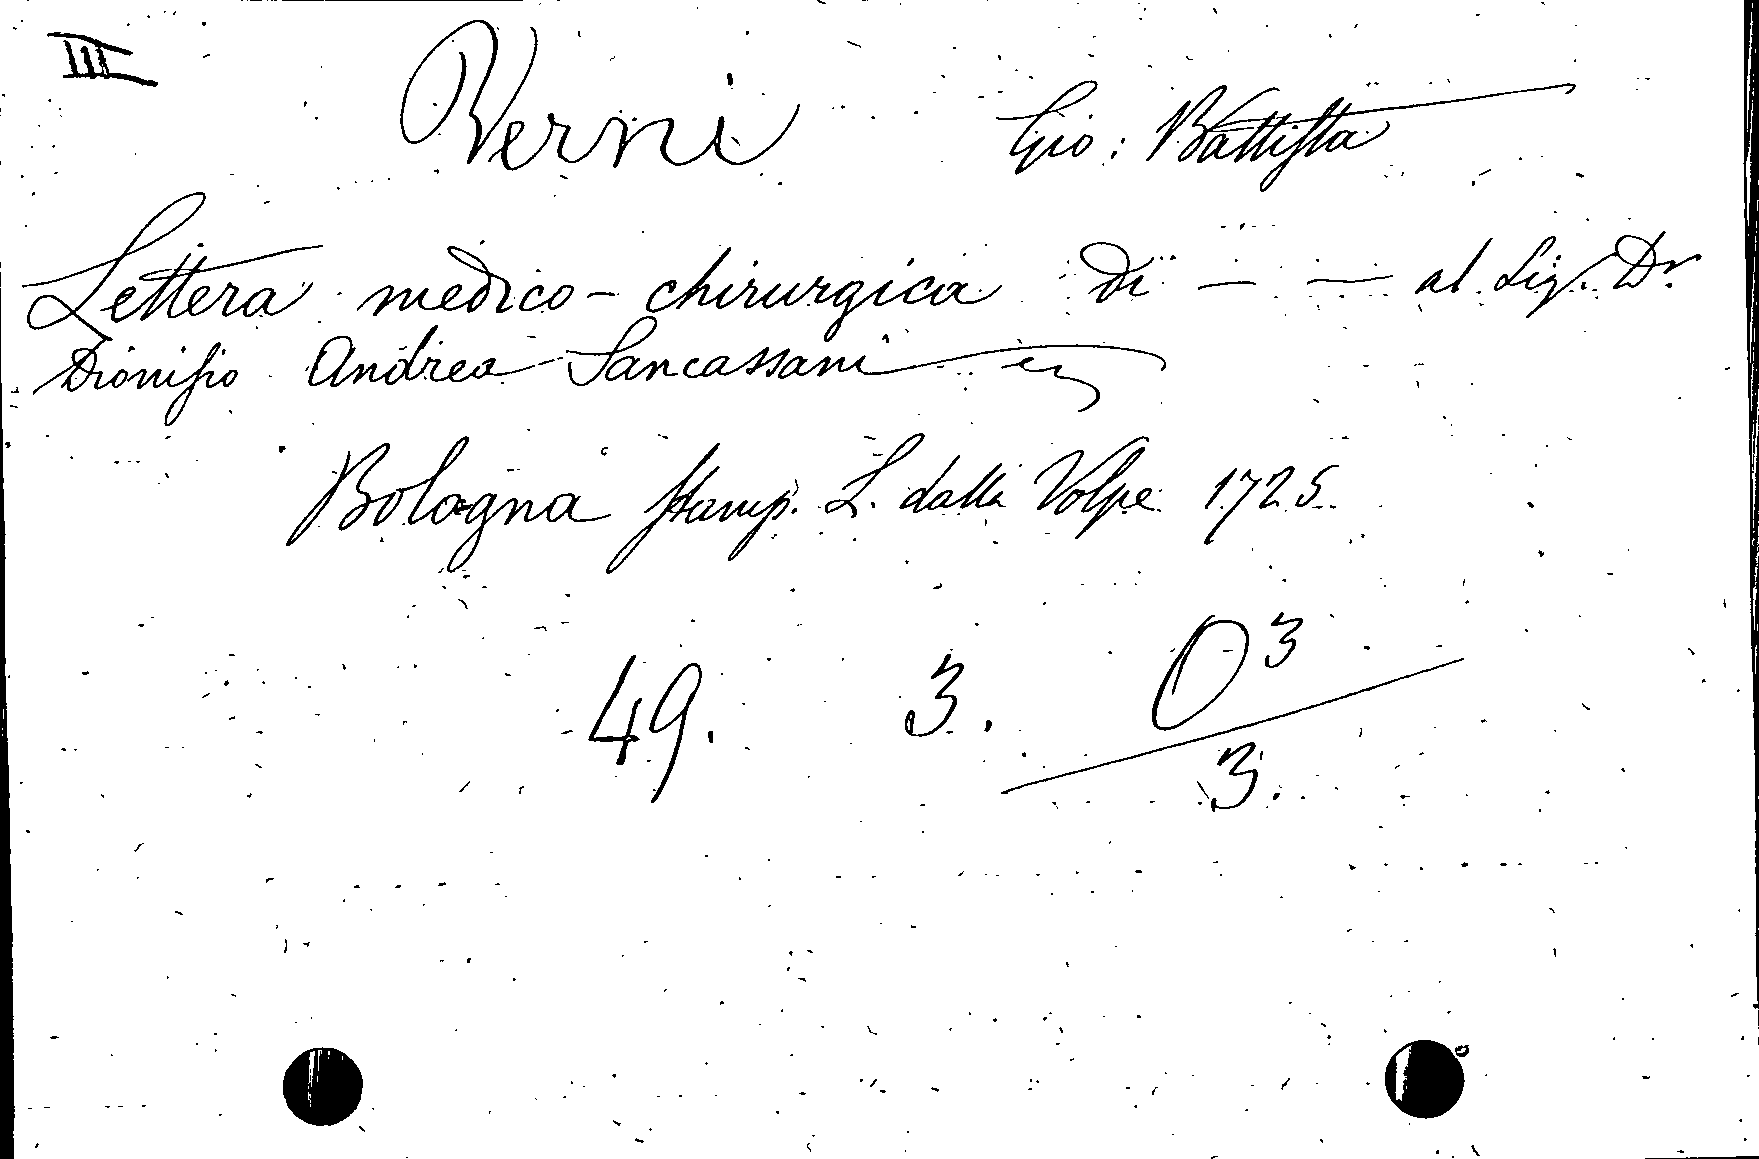 III
Verni Gio: Battista
Lettera medico-chirurgica di — — al Sig. Dr.
Dionisio Andrea Sancassani
Bologna stamp. L. dalla Volpe 1725.
49. 3. O3
3.